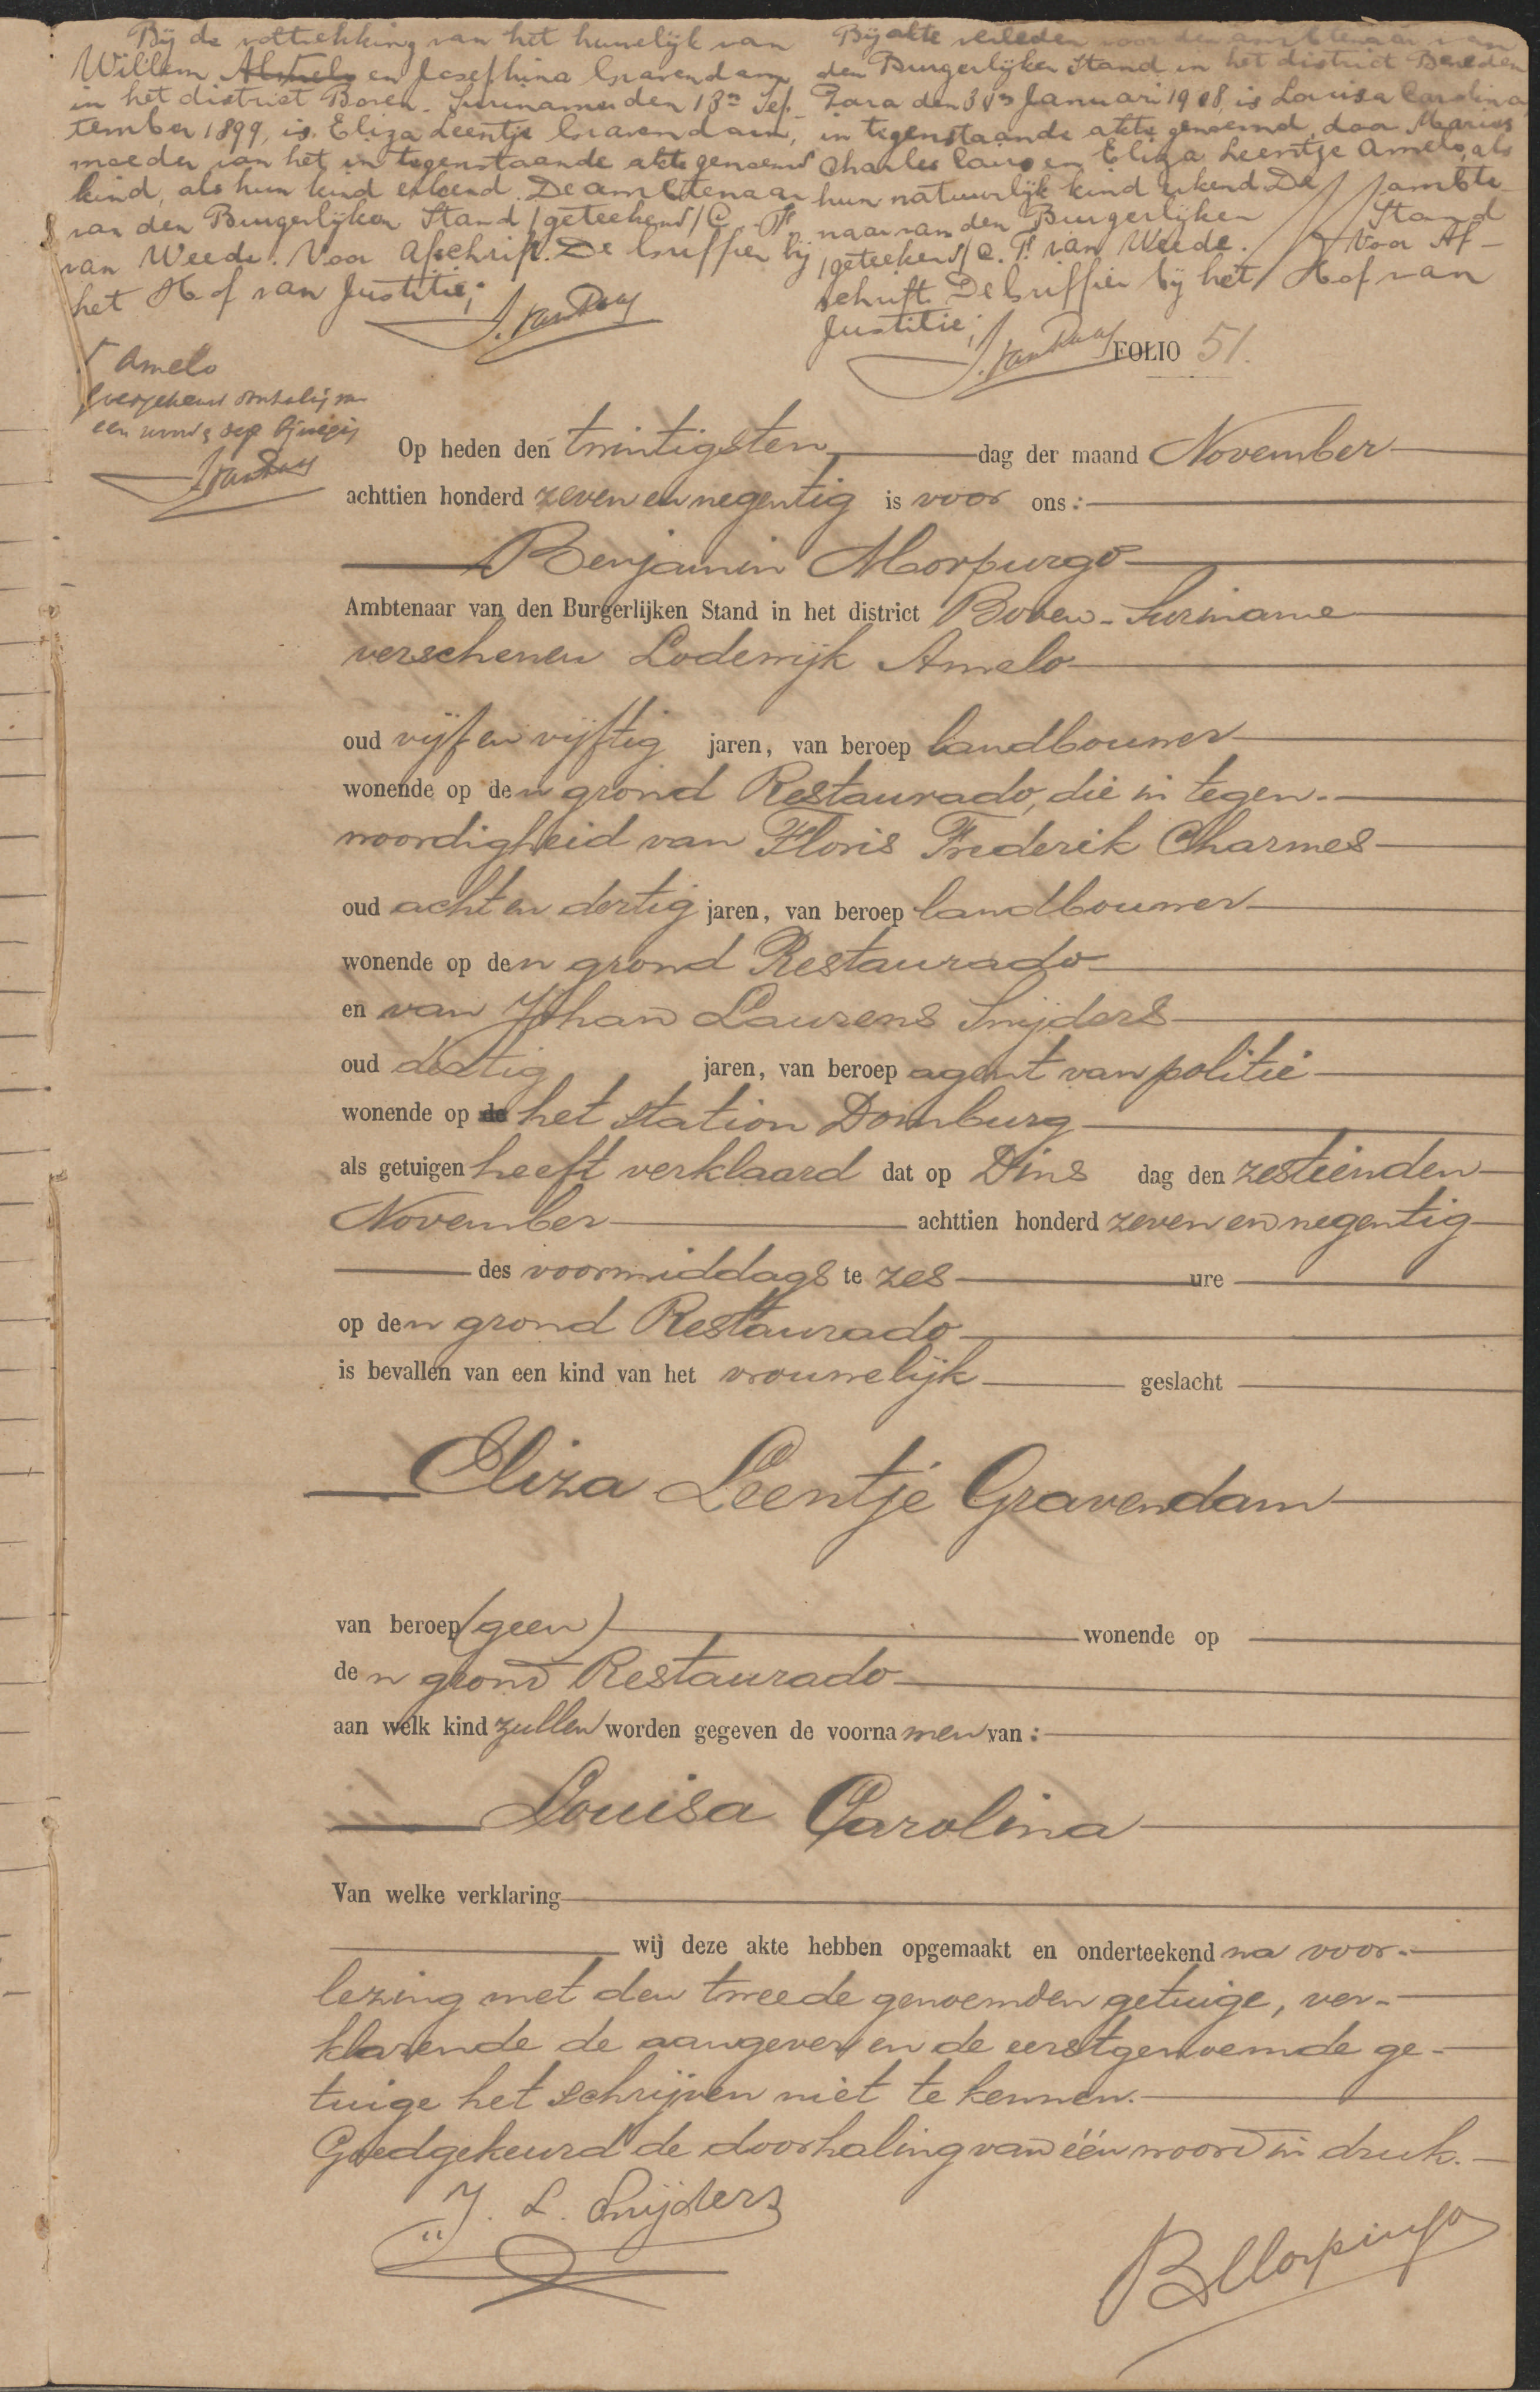 Bij de voltrekking van het huwelijk van
Willem Almelo en Josephina Gravendam
in het district Boven-Suriname den 13n Sep-
tember 1899, is Eliza Leentje Gravendam,
moeder van het in tegenstaande akte genoemd
kind, als hun kind erkend. De ambtenaar
van den Burgerlijken Stand /geteekend/ C. Ps.
van Weede. Voor Afschrift. De Griffier bij
het Hof van Justitie;
Bij akte verleden voor den ambtenaar van
den Burgerlijken Stand in het district Beneden
Para den 31n Januari 1908 is Louisa Carolina
in tegenstaande akte genoemd, door Marius
Charles en Eliza Leentje Amelo, als
hun natuurlijk kind erkend. De ambte-
naar van den Burgerlijken Stand
/geteekend/ C. Ps. van Weede. Voor Af-
schrift. De Griffier bij het Hof van
Justitie;
FOLIO 51.
Amelo
Op heden den twintigsten dag der maand November
achttien honderd zeven en negentig is voor ons:
Benjamin Morpurgo
Ambtenaar van den Burgerlijken Stand in het district Boven-Suriname
verschenen Lodewijk Amelo
oud vijf en vijftig jaren, van beroep landbouwer
wonende op den grond Restaurado, die in tegen-
woordigheid van Floris Frederik Charmes
oud acht en dertig jaren, van beroep landbouwer
wonende op den grond Restaurado
en van Johan Laurens Snijders
oud dertig jaren, van beroep agent van politie
wonende op de het station Domburg
als getuigen heeft verklaard dat op Dins dag den zestienden
November achttien honderd zeven en negentig
des voormiddags te zes ure
op den grond Restaurado
is bevallen van een kind van het vrouwelijk geslacht
Eliza Leentje Gravendam
van beroep (geen) wonende op
den grond Restaurado
aan welk kind zullen worden gegeven de voornamen van:
Louisa Carolina
Van welke verklaring
wij deze akte hebben opgemaakt en onderteekend na voor-
lezing met den tweede genoemden getuige, ver-
klarende de aangever en de eerstgenoemde ge-
tuige het schrijven niet te kennen.
Goedgekeurd de doorhaling van één woord in druk.
J. L. Snijders
B Morpurgo